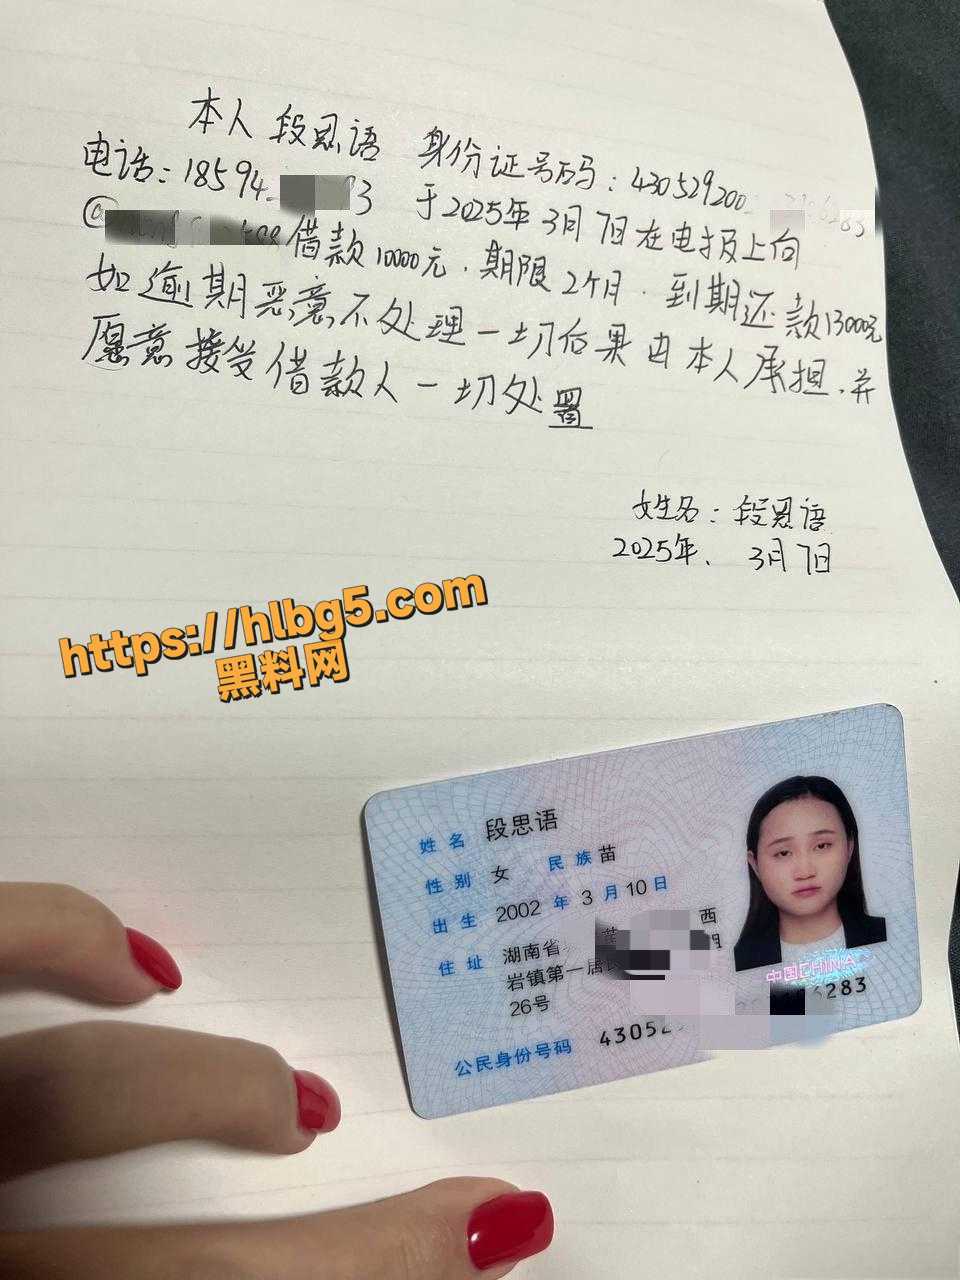 本人 段思语 身份证号码：430529200
电话：18594 3 于2025年3月7日在电报上向
@ 借款10000元，期限2个月．到期还款13000元
如逾期恶意不处理一切后果由本人承担．并
愿意接受借款人一切处置
姓名：段思语
2025年．3月7日
https://hlbg5.com
黑料网
姓名 段思语
性别 女 民族 苗
出生 2002年3月10日
住址 湖南省 西
岩镇第一居 组
26号
中国CHINA
公民身份号码 43052 6283